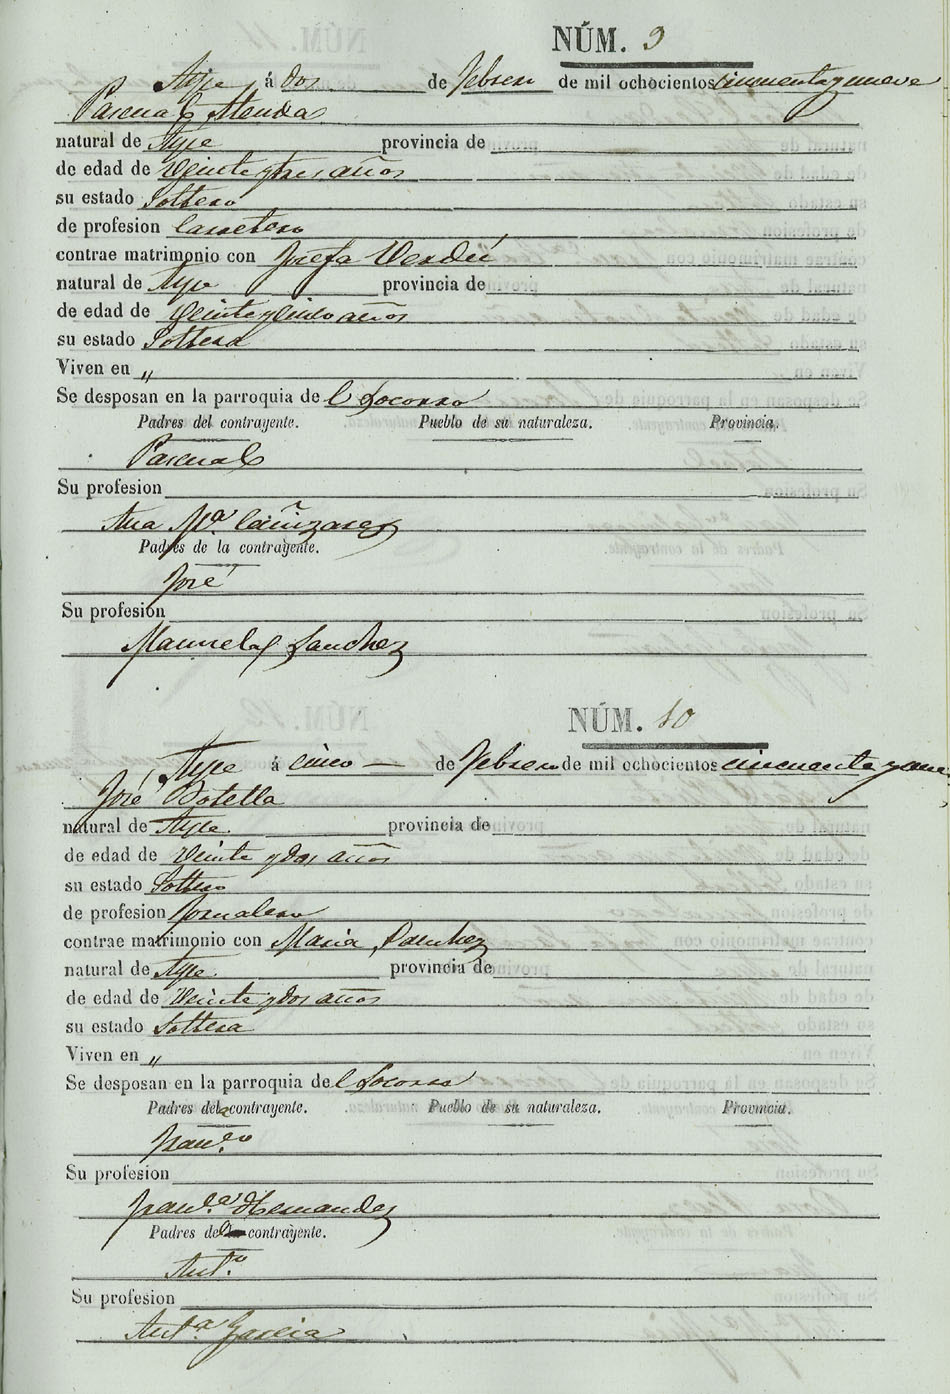 NÚM. 9
Aspe á dos de Febrero de mil ochocientos cincuenta y nueve
Pascual Alenda
natural de Aspe provincia de
de edad de Veinte y tres años
su estado Soltero
de profesion Carretero
contrae matrimonio con Josefa Verdú
natural de Aspe provincia de
de edad de Veinte y cinco años
su estado Soltera
Viven en "
Se desposan en la parroquia del Socorro
Padres del contrayente. Pueblo de su naturaleza. Provincia.
Pascual
Su profesion
Ana Mª. Cañizares
Padres de la contrayente.
José
Su profesion
Manuela Sanchez
NÚM. 10
Aspe á cinco de Febrero de mil ochocientos cincuenta y nueve
José Botella
natural de Aspe provincia de
de edad de Veinte y dos años
su estado Soltero
de profesion Jornalero
contrae matrimonio con Maria Sanchez
natural de Aspe provincia de
de edad de Veinte y dos años
su estado Soltera
Viven en "
Se desposan en la parroquia del Socorro
Padres del contrayente. Pueblo de su naturaleza. Provincia.
Franco.
Su profesion
Franca. Hernandez
Padres de la contrayente.
Anto.
Su profesion
Anta. Garcia